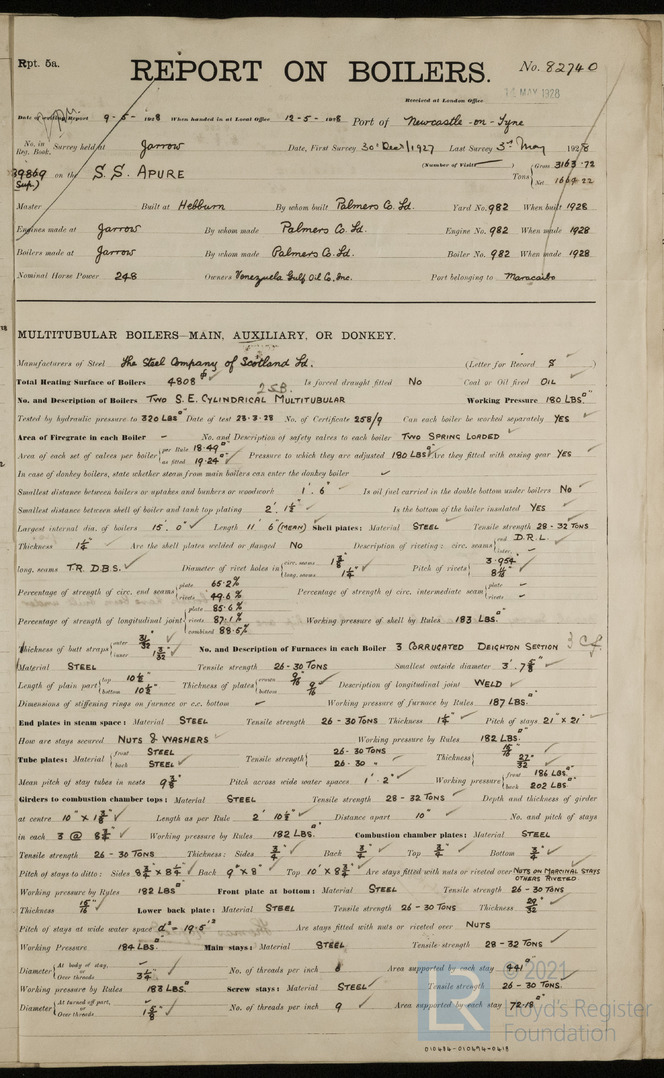 Rpt. 5a.
REPORT ON BOILERS.
No. 82740
Received at London Office
MAY 1928
Date of writing Report 9-5-1928 When handed in at Local Office 12-5-1928 Port of Newcastle-on-Tyne
No. in Reg. Book. Survey held at Jarrow Date, First Survey 30th Decr/1927 Last Survey 3rd May 1928
(Number of Visits )
39869 Sup.) on the S.S. APURE Tons { Gross 3163.72 Net 1664.22
Master Built at Hebburn By whom built Palmers Co. Ld. Yard No. 982 When built 1928
Engines made at Jarrow By whom made Palmers Co. Ld. Engine No. 982 When made 1928
Boilers made at Jarrow By whom made Palmers Co. Ld. Boiler No. 982 When made 1928
Nominal Horse Power 248 Owners Venezuela Gulf Oil Co. Inc. Port belonging to Maracaibo
MULTITUBULAR BOILERS—MAIN, AUXILIARY, OR DONKEY.
Manufacturers of Steel The Steel Company of Scotland Ld. (Letter for Record S )
Total Heating Surface of Boilers 4808 Is forced draught fitted No Coal or Oil fired OIL
2SB.
No. and Description of Boilers TWO S.E. CYLINDRICAL MULTITUBULAR Working Pressure 180 LBS□"
Tested by hydraulic pressure to 320 LBS□" Date of test 28.3.28 No. of Certificate 258/9 Can each boiler be worked separately YES
Area of Firegrate in each Boiler – No. and Description of safety valves to each boiler TWO SPRING LOADED
Area of each set of valves per boiler { per Rule 18.49□" as fitted 19.24□" Pressure to which they are adjusted 180 LBS□" Are they fitted with easing gear YES
In case of donkey boilers, state whether steam from main boilers can enter the donkey boiler –
Smallest distance between boilers or uptakes and bunkers or woodwork 1'.6" Is oil fuel carried in the double bottom under boilers No
Smallest distance between shell of boiler and tank top plating 2'.1½" Is the bottom of the boiler insulated YES
Largest internal dia. of boilers 15'.0" Length 11' 6" (MEAN) Shell plates: Material STEEL Tensile strength 28-32 TONS
Thickness 1¼" Are the shell plates welded or flanged No Description of riveting: circ. seams { end D.R.L. inter. –
long. seams T.R.D.B.S. Diameter of rivet holes in { circ. seams 1⅜" long. seams 1¼" Pitch of rivets { 3.954" 8⅛"
Percentage of strength of circ. end seams { plate 65.2% rivets 49.6% Percentage of strength of circ. intermediate seam { plate – rivets –
Percentage of strength of longitudinal joint { plate 85.6% rivets 87.1% combined 88.5% Working pressure of shell by Rules 183 LBS.
Thickness of butt straps { outer 31/32" inner 1 3/32" No. and Description of Furnaces in each Boiler 3 CORRUGATED DEIGHTON SECTION 3 Cf.
Material STEEL Tensile strength 26-30 TONS Smallest outside diameter 3'.7⅝"
Length of plain part { top 10½" bottom 10½" Thickness of plates { crown 9/16" bottom 9/16" Description of longitudinal joint WELD
Dimensions of stiffening rings on furnace or c.c. bottom – Working pressure of furnace by Rules 187 LBS.
End plates in steam space: Material STEEL Tensile strength 26-30 TONS Thickness 1¼" Pitch of stays 21" x 21"
How are stays secured NUTS & WASHERS Working pressure by Rules 182 LBS.
Tube plates: Material { front STEEL back STEEL Tensile strength { 26-30 TONS 26-30 " Thickness { 15/16" 27/32"
Mean pitch of stay tubes in nests 9⅜" Pitch across wide water spaces 1'.2" Working pressure { front 186 LBS□" back 202 LBS□"
Girders to combustion chamber tops: Material STEEL Tensile strength 28-32 TONS Depth and thickness of girder
at centre 10" x 1¾" Length as per Rule 2' 10½" Distance apart 10" No. and pitch of stays
in each 3 @ 8¾" Working pressure by Rules 182 LBS□" Combustion chamber plates: Material STEEL
Tensile strength 26-30 TONS Thickness: Sides ¾" Back ¾" Top ¾" Bottom ¾"
Pitch of stays to ditto: Sides 8¾" x 8¼" Back 9" x 8" Top 10" x 8¾" Are stays fitted with nuts or riveted over NUTS ON MARGINAL STAYS OTHERS RIVETED
Working pressure by Rules 182 LBS□" Front plate at bottom: Material STEEL Tensile strength 26-30 TONS
Thickness 15/16" Lower back plate: Material STEEL Tensile strength 26-30 TONS Thickness 29/32"
Pitch of stays at wide water space d² = 19.5² Are stays fitted with nuts or riveted over NUTS
Working Pressure 184 LBS□" Main stays: Material STEEL Tensile strength 28-32 TONS
Diameter { At body of stay, or Over threads 3¼" No. of threads per inch 6 Area supported by each stay 441□"
Working pressure by Rules 183 LBS□" Screw stays: Material STEEL Tensile strength 26-30 TONS.
Diameter { At turned off part, or Over threads 1⅝" No. of threads per inch 9 Area supported by each stay 72.18□"
LR © 2021
Lloyd's Register
Foundation
010486-010494-0418